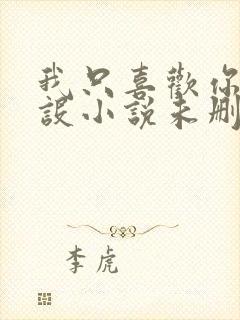 我只喜歡你
設小說未刪
李虎